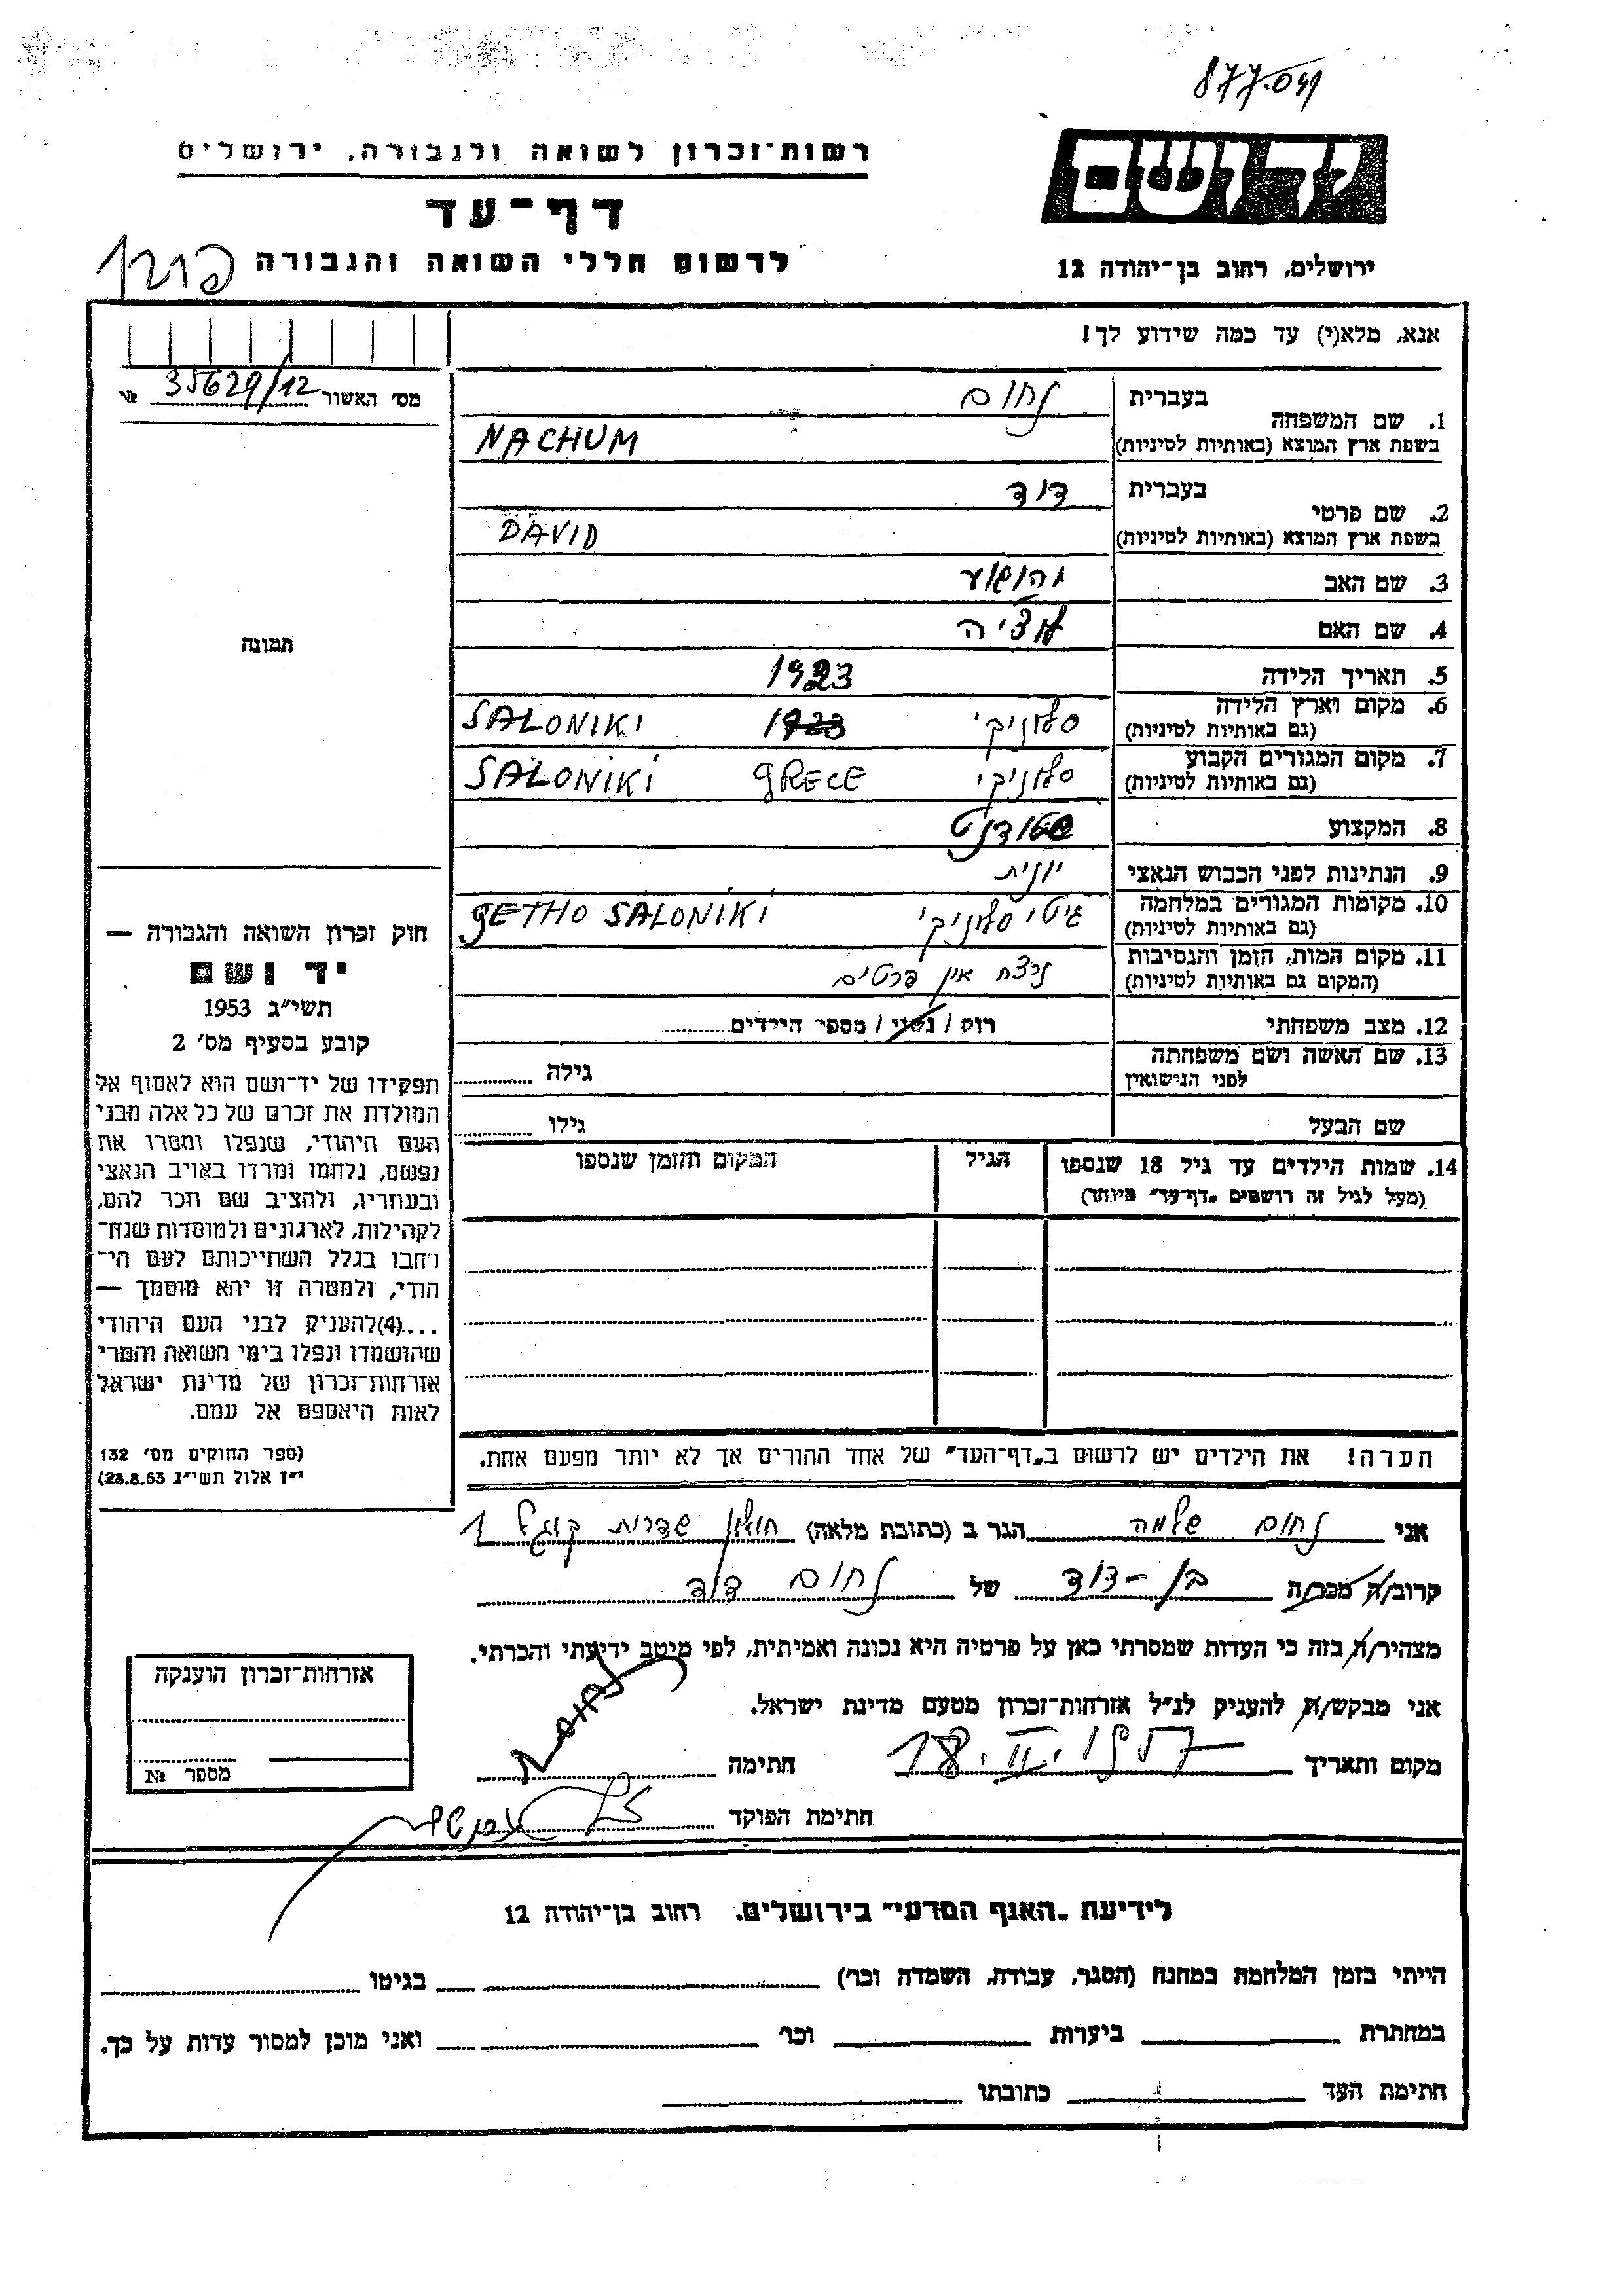 877.041
רשות־זכרון לשואה ולגבורה, ירושלים
ידושם
דף־עד
לרשום חללי השואה והגבורה
ירושלים, רחוב בן־יהודה 12
אנא, מלא(י) עד כמה שידוע לך!
מס׳ האשור 35629/12 №
1. שם המשפחה
בעברית נחום
בשפת ארץ המוצא (באותיות לטיניות) NACHUM
2. שם פרטי
בעברית דוד
בשפת ארץ המוצא (באותיות לטיניות) DAVID
3. שם האב יהושע
4. שם האם
5. תאריך הלידה 1923
6. מקום וארץ הלידה (גם באותיות לטיניות) סלוניקי 1923 SALONIKI
7. מקום המגורים הקבוע (גם באותיות לטיניות) סלוניקי GRECE SALONIKI
8. המקצוע סטודנט
9. הנתינות לפני הכבוש הנאצי יונית
10. מקומות המגורים במלחמה (גם באותיות לטיניות) גיטו סלוניקי GETHO SALONIKI
11. מקום המות, הזמן והנסיבות (המקום גם באותיות לטיניות) נרצח אין פרטים
12. מצב משפחתי רוק / נשוי / מספר הילדים
13. שם האשה ושם משפחתה לפני הנישואין גילה
שם הבעל גילו
14. שמות הילדים עד גיל 18 שנספו הגיל המקום והזמן שנספו
(מעל לגיל זה רושמים „דף־עד״ מיוחד)
הערה! את הילדים יש לרשום ב„דף־העד״ של אחד ההורים אך לא יותר מפעם אחת.
תמונה
חוק זכרון השואה והגבורה —
יד ושם
תשי״ג 1953
קובע בסעיף מס׳ 2
תפקידו של יד־ושם הוא לאסוף אל
המולדת את זכרם של כל אלה מבני
העם היהודי, שנפלו ומסרו את
נפשם, נלחמו ומרדו באויב הנאצי
ובעוזריו, ולהציב שם וזכר להם,
לקהילות, לארגונים ולמוסדות שנח־
רחבו בגלל השתייכותם לעם הי־
הודי, ולמטרה זו יהא מוסמך —
...(4) להעניק לבני העם היהודי
שהושמדו ונפלו בימי השואה והמרי
אזרחות־זכרון של מדינת ישראל
לאות היאספם אל עמם.
(ספר החוקים מס׳ 132
י״ז אלול תשי״ג 28.8.53)
אני נחום שלמה הגר ב (כתובת מלאה) חולון שדרות קוגל 1
קרוב/ה מכר/ה בן-דוד של נחום דוד
מצהיר/ה בזה כי העדות שמסרתי כאן על פרטיה היא נכונה ואמיתית, לפי מיטב ידיעתי והכרתי.
אני מבקש/ת להעניק לנ״ל אזרחות־זכרון מטעם מדינת ישראל.
מקום ותאריך 18.II.1957 חתימה נחום
חתימת הפוקד
אזרחות־זכרון הוענקה
מספר №
לידיעת „האגף המדעי״ בירושלים. רחוב בן־יהודה 12
הייתי בזמן המלחמה במחנה (הסגר, עבודה, השמדה וכו׳) בגיטו
במחתרת ביערות וכו׳ ואני מוכן למסור עדות על כך.
חתימת העד כתובתו